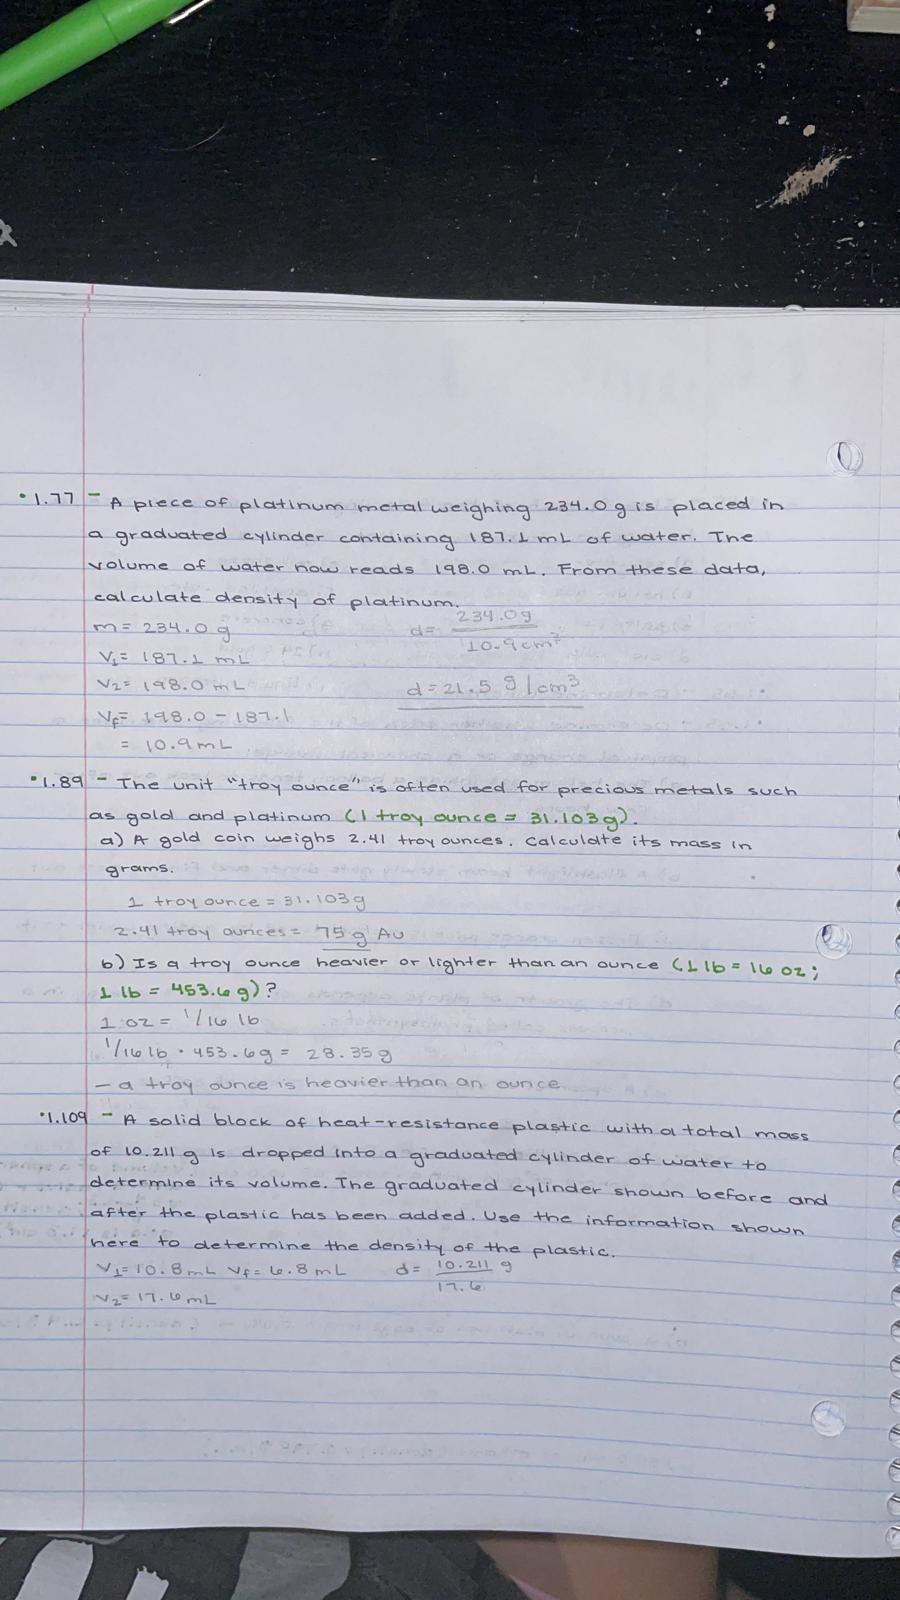 • 1.77 - A piece of platinum metal weighing 234.0 g is placed in
a graduated cylinder containing 187.1 mL of water. The
volume of water now reads 198.0 mL. From these data,
calculate density of platinum.
m = 234.0 g
d = 234.0g / 10.9cm³
V₁= 187.1 mL
V₂= 198.0 mL
d = 21.5 g/cm³
Vf= 198.0 - 187.1
= 10.9mL
• 1.89 - The unit "troy ounce" is often used for precious metals such
as gold and platinum (1 troy ounce = 31.103g).
a) A gold coin weighs 2.41 troy ounces. Calculate its mass in
grams.
1 troy ounce = 31.103g
2.41 troy ounces = 75g Au
b) Is a troy ounce heavier or lighter than an ounce (1 lb = 16 oz;
1 lb = 453.6 g)?
1 oz = 1/16 lb
1/16 lb · 453.6g = 28.35g
- a troy ounce is heavier than an ounce
• 1.109 - A solid block of heat-resistance plastic with a total mass
of 10.211 g is dropped into a graduated cylinder of water to
determine its volume. The graduated cylinder shown before and
after the plastic has been added. Use the information shown
here to determine the density of the plastic.
V₁=10.8mL Vf= 6.8 mL d = 10.211 g / 17.6
V₂= 17.6 mL